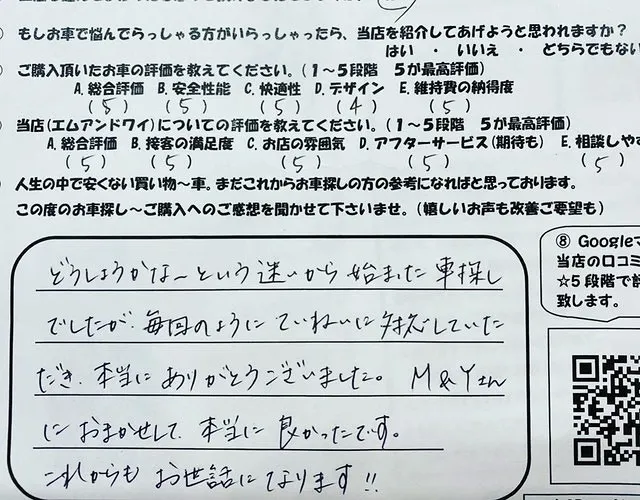 もしお車で悩んでらっしゃる方がいらっしゃったら、当店を紹介してあげようと思われますか？
はい ・ いいえ ・ どちらでもない
ご購入頂いたお車の評価を教えてください。（１～５段階　５が最高評価）
A. 総合評価　B. 安全性能　C. 快適性　D. デザイン　E. 維持費の納得度
（5）　（5）　（5）　（4）　（5）
当店（エムアンドワイ）についての評価を教えてください。（１～５段階　５が最高評価）
A. 総合評価　B. 接客の満足度　C. お店の雰囲気　D. アフターサービス（期待も）　E. 相談しやす
（5）　（5）　（5）　（5）　（5）
人生の中で安くない買い物～車。まだこれからお車探しの方の参考になればと思っております。
この度のお車探し～ご購入へのご感想を聞かせて下さいませ。（嬉しいお声も改善ご要望も）
どうしようかな～という迷いから始まった車探し
でしたが、毎回のようにていねいに対応していた
だき、本当にありがとうございました。M&Yさん
におまかせして、本当に良かったです。
これからもお世話になります!!
⑧ Googleマ
当店の口コミ
☆５段階で評
致します。